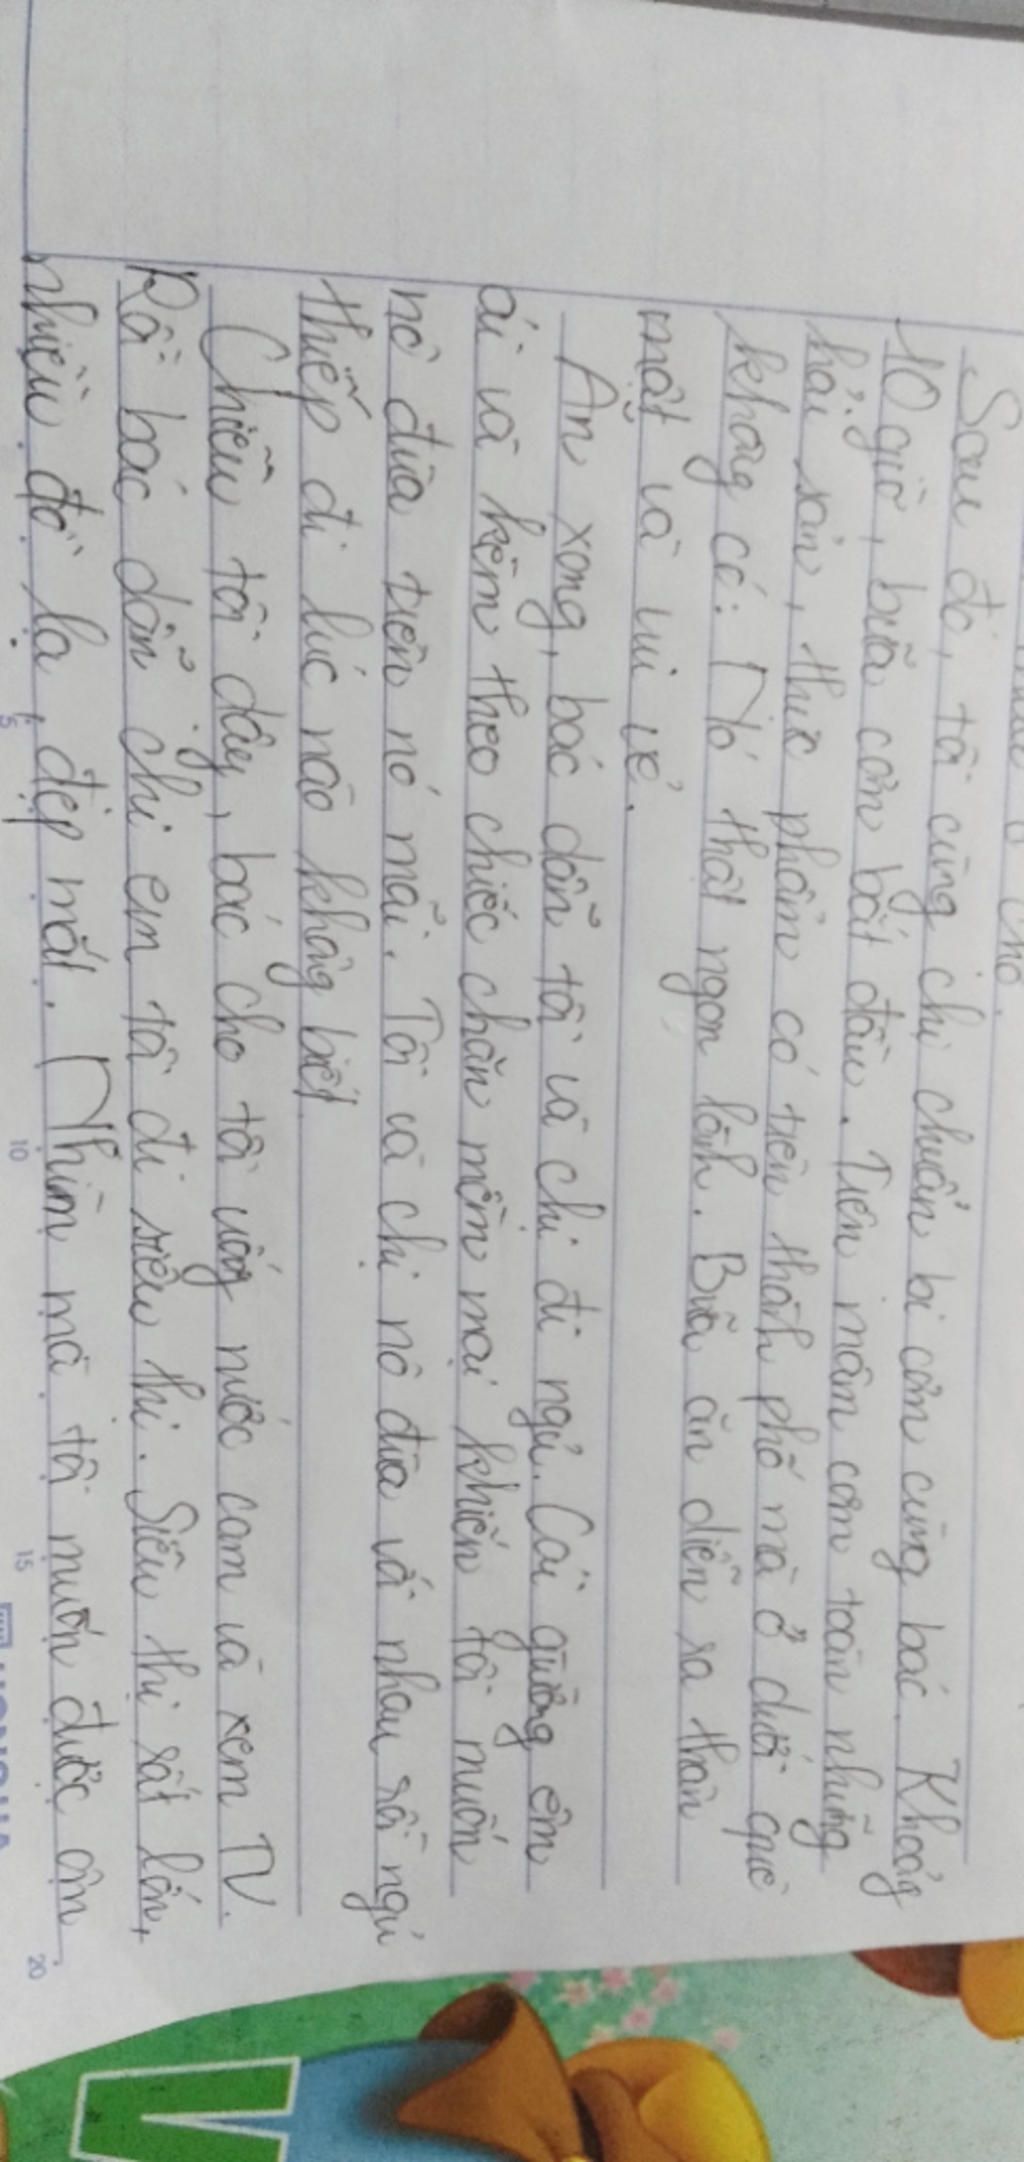 cho.
Sau đó, tôi cùng chị chuẩn bị cơm cùng bác. Khoảng
10 giờ, bữa cơm bắt đầu. Trên mâm cơm toàn những
hải sản, thực phẩm có trên thành phố mà ở dưới quê
không có. Nó thật ngon lành. Bữa ăn diễn ra thân
mật và vui vẻ.
Ăn xong, bác dẫn tôi và chị đi ngủ. Cái giường êm
ái và kèm theo chiếc chăn mềm mại khiến tôi muốn
nô đùa trên nó mãi. Tôi và chị nô đùa với nhau rồi ngủ
thiếp đi lúc nào không biết
Chiều tôi dậy, bác cho tôi uống nước cam và xem TV.
Rồi bác dẫn chị em tôi đi siêu thị. Siêu thị rất lớn,
nhiều đồ lạ, đẹp mắt. Nhưng mà tôi muốn được ôm
5
10
15
20